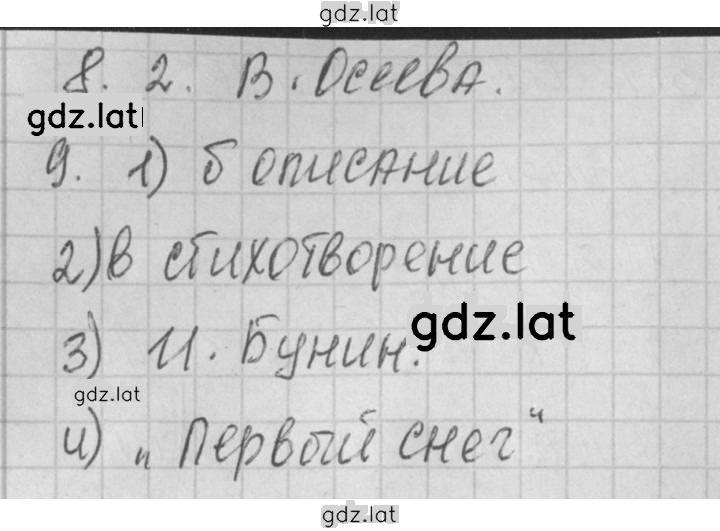 gdz.lat
8. 2. В. Осеева.
gdz.lat
9. 1) б описание
2) в стихотворение
gdz.lat
3) И. Бунин.
gdz.lat
4) „Первый снег“
gdz.lat